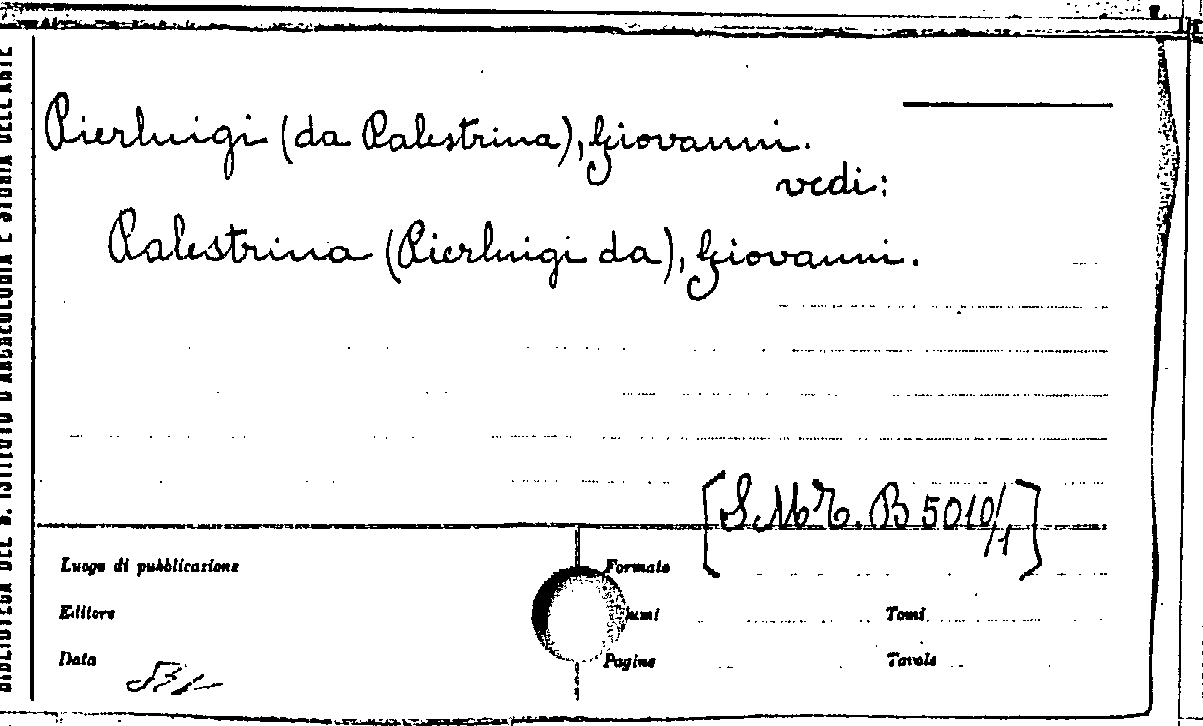 BIBLIOTECA DEL R. ISTITUTO D'ARCHEOLOGIA E STORIA DELL'ARTE
Pierluigi (da Palestrina), Giovanni.
vedi:
Palestrina (Pierluigi da), Giovanni.
[S.M.R. B 5010/1]
Luogo di pubblicazione
Formato
Editore
umi
Tomi
Data
Pagine
Tavole